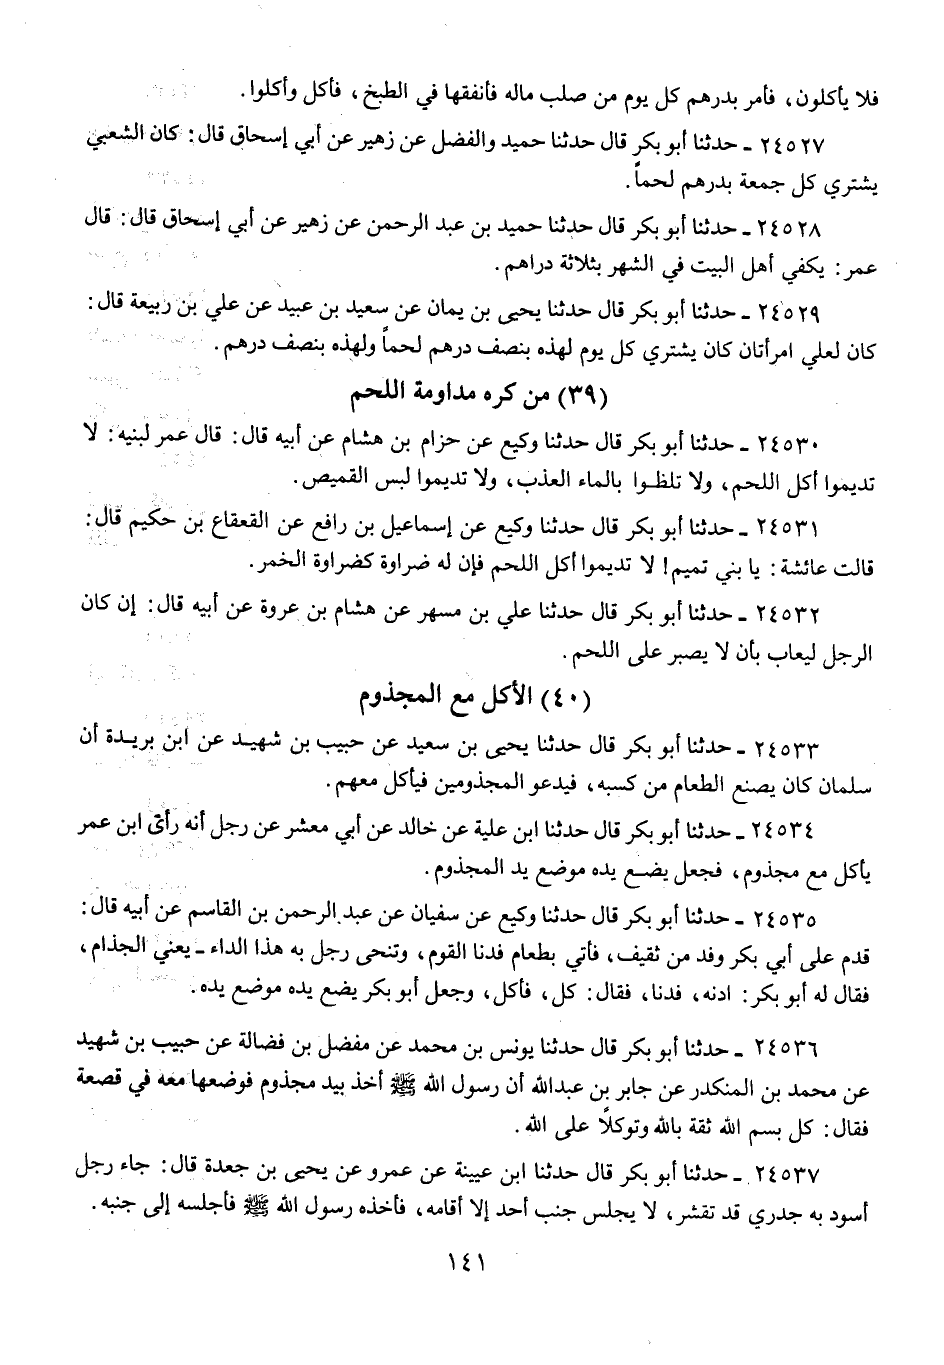 فلا يأكلون، فأمر بدرهم كل يوم من صلب ماله فأنفقها في الطبخ، فأكل وأكلوا.
٢٤٥٢٧ ـ حدثنا أبو بكر قال حدثنا حميد والفضل عن زهير عن أبي إسحاق قال: كان الشعبي
يشتري كل جمعة بدرهم لحماً.
٢٤٥٢٨ ـ حدثنا أبو بكر قال حدثنا حميد بن عبد الرحمن عن زهير عن أبي إسحاق قال: قال
عمر: يكفي أهل البيت في الشهر بثلاثة دراهم.
٢٤٥٢٩ ـ حدثنا أبو بكر قال حدثنا يحيى بن يمان عن سعيد بن عبيد عن علي بن ربيعة قال:
كان لعلي امرأتان كان يشتري كل يوم لهذه بنصف درهم لحماً ولهذه بنصف درهم.
(٣٩) من كره مداومة اللحم
٢٤٥٣٠ ـ حدثنا أبو بكر قال حدثنا وكيع عن حزام بن هشام عن أبيه قال: قال عمر لبنيه: لا
تديموا أكل اللحم، ولا تلظوا بالماء العذب، ولا تديموا لبس القميص.
٢٤٥٣١ ـ حدثنا أبو بكر قال حدثنا وكيع عن إسماعيل بن رافع عن القعقاع بن حكيم قال:
قالت عائشة: يا بني تميم! لا تديموا أكل اللحم فإن له ضراوة كضراوة الخمر.
٢٤٥٣٢ ـ حدثنا أبو بكر قال حدثنا علي بن مسهر عن هشام بن عروة عن أبيه قال: إن كان
الرجل ليعاب بأن لا يصبر على اللحم.
(٤٠) الأكل مع المجذوم
٢٤٥٣٣ ـ حدثنا أبو بكر قال حدثنا يحيى بن سعيد عن حبيب بن شهيد عن ابن بريدة أن
سلمان كان يصنع الطعام من كسبه، فيدعو المجذومين فيأكل معهم.
٢٤٥٣٤ ـ حدثنا أبو بكر قال حدثنا ابن علية عن خالد عن أبي معشر عن رجل أنه رأى ابن عمر
يأكل مع مجذوم، فجعل يضع يده موضع يد المجذوم.
٢٤٥٣٥ ـ حدثنا أبو بكر قال حدثنا وكيع عن سفيان عن عبد الرحمن بن القاسم عن أبيه قال:
قدم على أبي بكر وفد من ثقيف، فأتي بطعام فدنا القوم، وتنحى رجل به هذا الداء ـ يعني الجذام،
فقال له أبو بكر: ادنه، فدنا، فقال: كل، فأكل، وجعل أبو بكر يضع يده موضع يده.
٢٤٥٣٦ ـ حدثنا أبو بكر قال حدثنا يونس بن محمد عن مفضل بن فضالة عن حبيب بن شهيد
عن محمد بن المنكدر عن جابر بن عبدالله أن رسول الله ﷺ أخذ بيد مجذوم فوضعها معه في قصعة
فقال: كل بسم الله ثقة بالله وتوكلاً على الله.
٢٤٥٣٧ ـ حدثنا أبو بكر قال حدثنا ابن عيينة عن عمرو عن يحيى بن جعدة قال: جاء رجل
أسود به جدري قد تقشر، لا يجلس جنب أحد إلا أقامه، فأخذه رسول الله ﷺ فأجلسه إلى جنبه.
١٤١